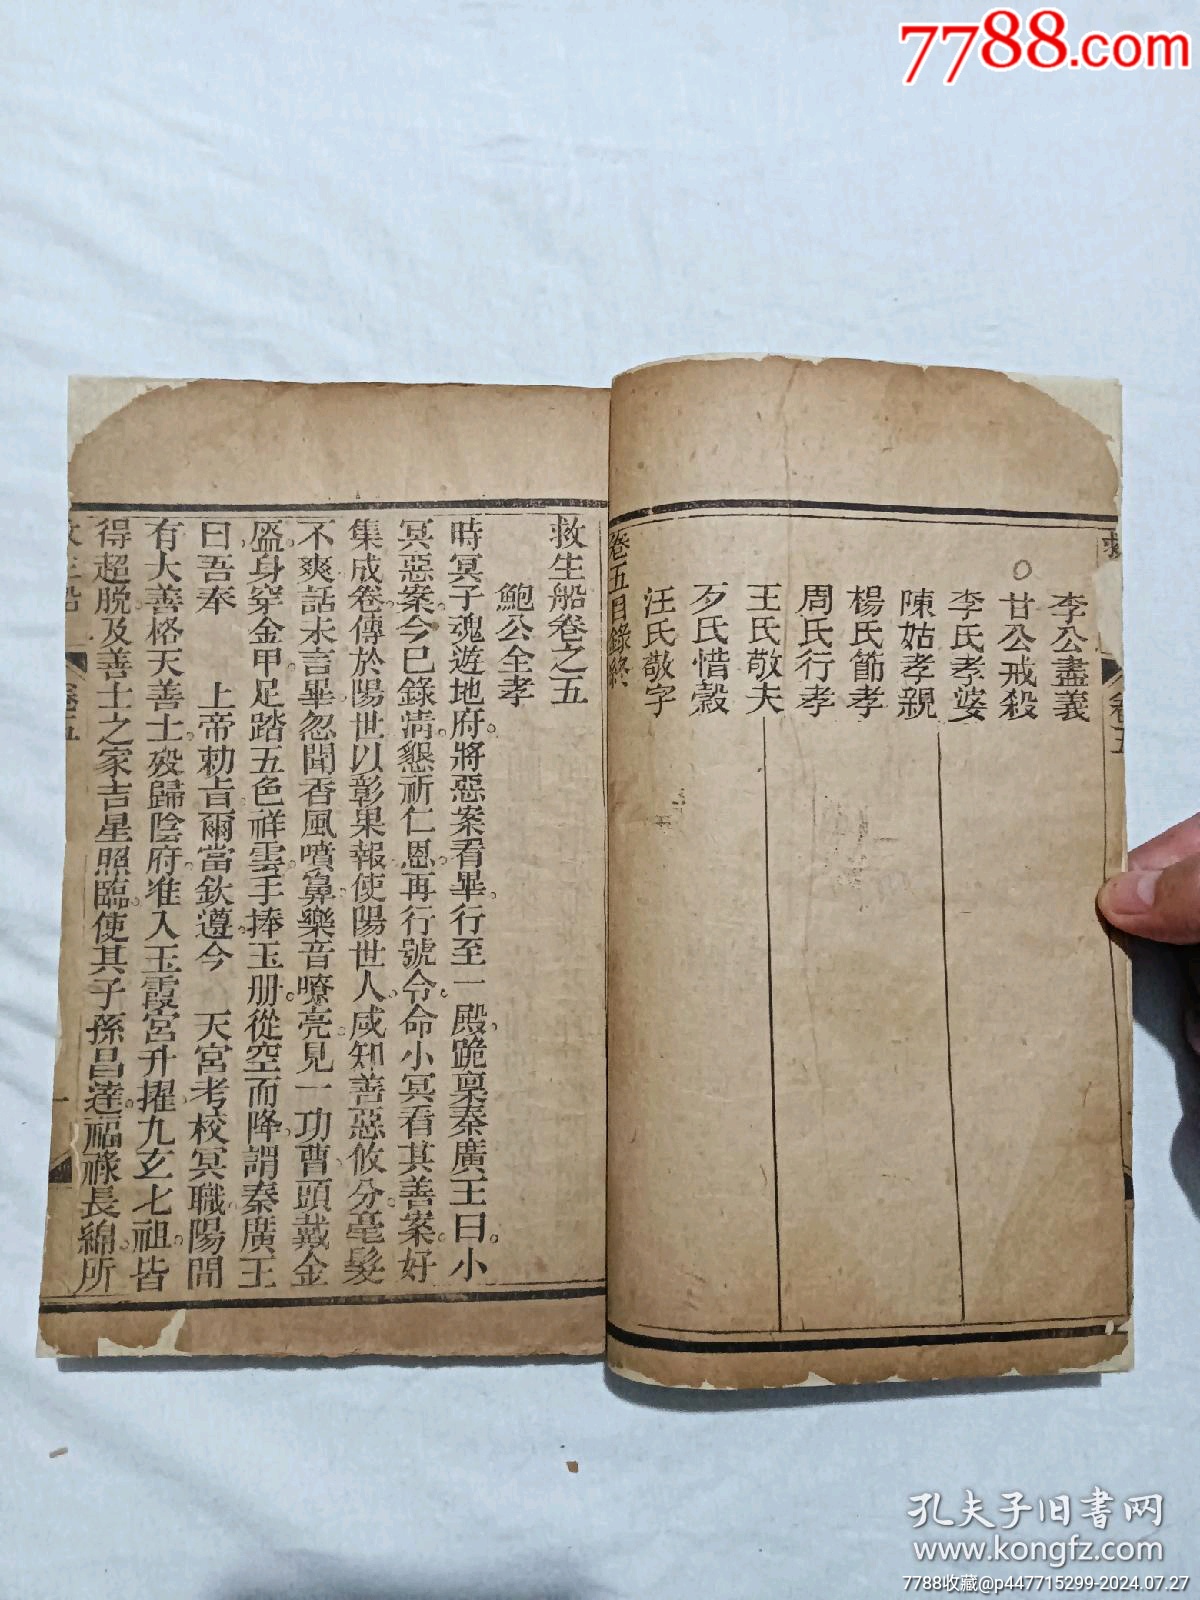 7788.com
李公盡義
甘公戒殺
李氏孝婆
陳姑孝親
楊氏節孝
周氏行孝
王氏敬夫
歹氏惜穀
汪氏敬字
卷五目錄終
救生船卷之五
鮑公全孝
時冥子魂遊地府。將惡案看畢。行至一殿。跪稟秦廣王曰。小
冥惡案。今已錄清。懇祈仁恩。再行號令。命小冥看其善案。好
集成卷。傳於陽世。以彰果報。使陽世人。咸知善惡攸分。毫髮
不爽。話未言畢。忽聞香風噴鼻。樂音嘹亮。見一功曹。頭戴金
盔。身穿金甲。足踏五色祥雲。手捧玉册。從空而降。謂秦廣王
曰。吾奉 上帝勅旨。爾當欽遵。今 天宮考校冥職。陽間
有大善格天善士。殁歸陰府。准入玉霞宮。升擢九玄七祖。皆
得超脫。及善士之家。吉星照臨。使其子孫昌達。福祿長綿。所
救生船 卷五 一
孔夫子旧书网
www.kongfz.com
7788收藏@p447715299-2024.07.27